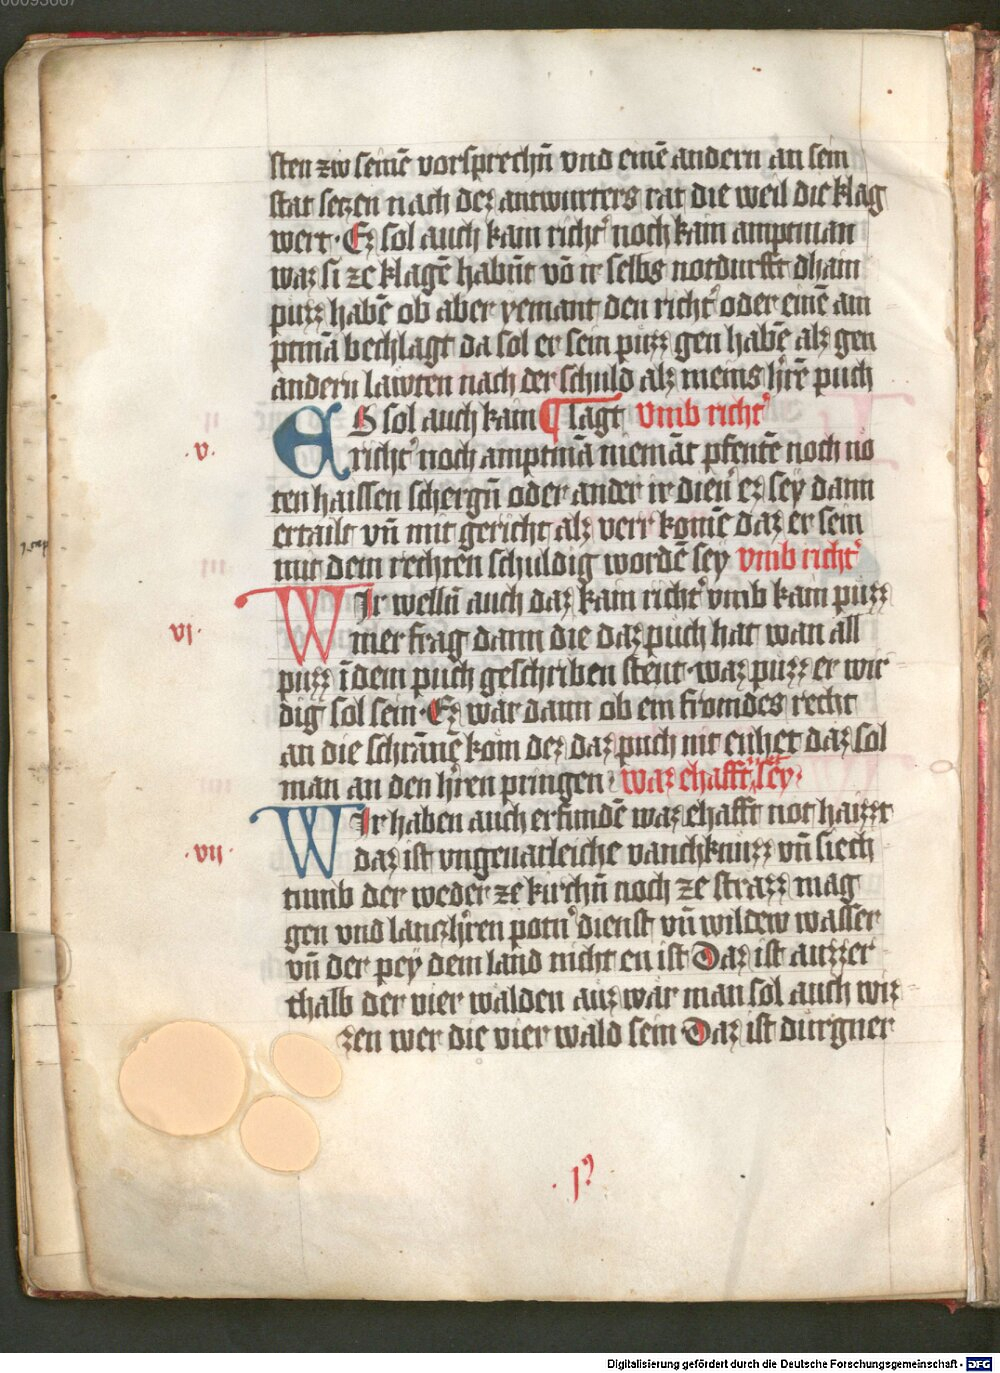 sten zw seinē vorsprechn̄ vnd einē andern an sein
stat seczen nach dez antwurters rat die weil die klag
wert· Ez sol auch kain richtʼ noch kain amptman
waz si ze klagē habnt̄ vō ir selbs notdurfft dhain
puzz habē ob aber yemant den richtʼ oder einē am
ptmā bechlagt da sol er sein puzz gen habē alz gen
andern lawten nach der schuld alz meins hʼrē puch
ES sol auch kain ¶ lagt vmb richtʼ
v·
richtʼ noch amptmā niemāt pfentē noch no
ten haissen schergn̄ oder ander ir dienʼ ez sey dann
ertailt vn̄ mit gericht alz verr komē daz er sein
mit dem rechten schuldig wordē sey vmb richtʼ
WIr welln̄ auch daz kain richtʼ vmb kain puzz
vi·
mer frag dann die daz puch hat wan all
puzz ī dem puch geschriben stent· waz puzz er wir
dig sol sein· Ez wär dann ob ein frömdes recht
an die schrannē kom dez daz puch nit enhet daz sol
man an den hʼren pringen· waz ehafft sey·
WIr haben auch erfundē waz ehafft not haizzt
·vii·
daz ist vngeuarleiche vanchknuzz vn̄ siech
tumb der weder ze kirchn̄ noch ze strazz mag
gen vnd lanczhʼren potn̄ dienst vn̄ wildew wasser
vn̄ der pey dem land nicht en ist Daz ist auzzer
thalb der vier wälden auz wär man sol auch wiz
zen wer die vier wäld sein Daz ist durgner
Digitalisierung gefördert durch die Deutsche Forschungsgemeinschaft - DFG